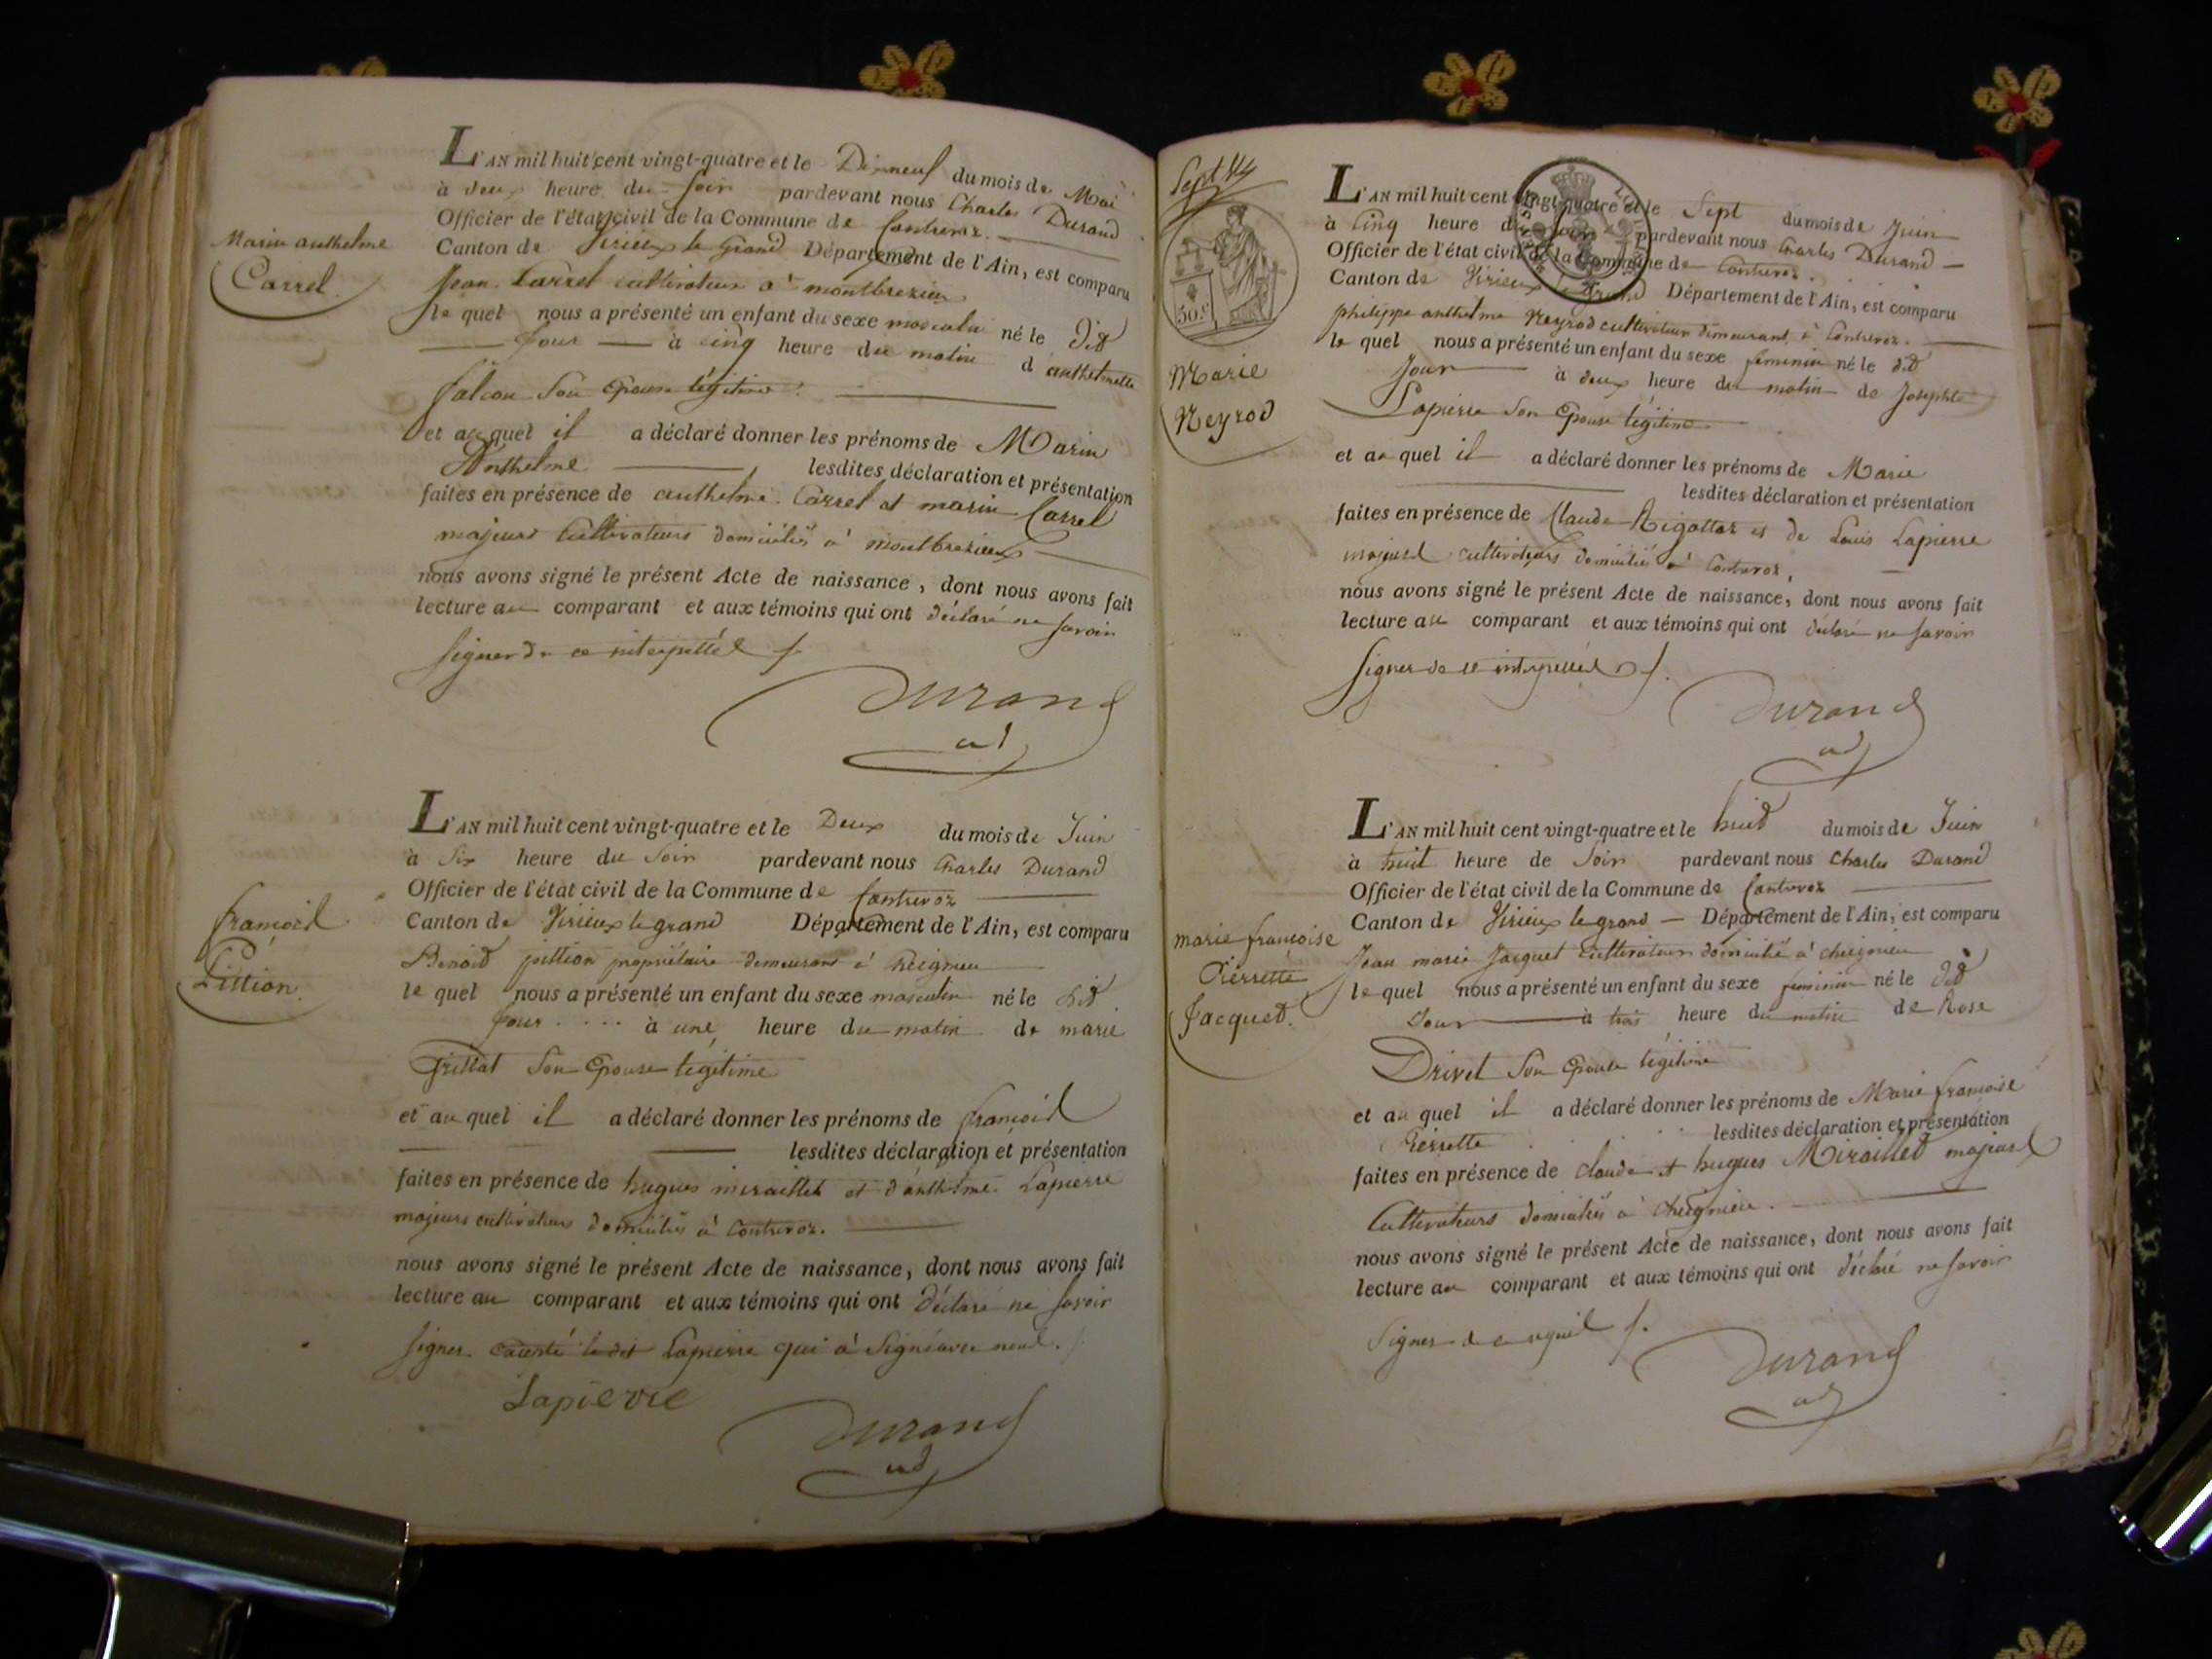 L'AN mil huit cent vingt-quatre et le Dixneuf du mois de Mai
à deux heure du soir pardevant nous Charles Durand
Officier de l'état civil de la Commune de Contrevoz.
Canton de Virieux le grand Département de l'Ain, est comparu
Marin anthelme
Carrel.
Jean Carrel cultivateur à montbrezieu
le quel nous a présenté un enfant du sexe masculin né le dit
jour à cinq heure du matin d'anthelmette
falcon Son Epouse légitime.
et au quel il a déclaré donner les prénoms de Marin
Anthelme lesdites déclaration et présentation
faites en présence de anthelme Carrel et marin Carrel
majeurs Cultivateurs domiciliés à montbrezieux
nous avons signé le présent Acte de naissance, dont nous avons fait
lecture au comparant et aux témoins qui ont déclaré ne savoir
signer de ce interpellés
Durand
adj
L'AN mil huit cent vingt-quatre et le Deux du mois de Juin
à six heure du soir pardevant nous Charles Durand
Officier de l'état civil de la Commune de Contrevoz
Canton de Virieux le grand Département de l'Ain, est comparu
françois
Pittion.
Benoid pittion propriétaire demeurant à
le quel nous a présenté un enfant du sexe masculin né le dit
jour à une heure du matin de marie
Son Epouse légitime
et au quel il a déclaré donner les prénoms de françois
lesdites déclaration et présentation
faites en présence de hugues miraillet et d'anthelme Lapierre
majeurs cultivateurs domiciliés à Contrevoz.
nous avons signé le présent Acte de naissance, dont nous avons fait
lecture au comparant et aux témoins qui ont déclaré ne savoir
signer. Excepté le dit Lapierre qui à Signé avec nous.
Lapierre
Durand
adj
Sept
50 c
L'AN mil huit cent vingt-quatre et le Sept du mois de Juin
à Cinq heure du soir pardevant nous Charles Durand
Officier de l'état civil de la Commune de Contrevoz.
Canton de Virieux le grand Département de l'Ain, est comparu
philippe anthelme Neyrod cultivateur demeurant à Contrevoz.
Marie
Neyrod
le quel nous a présenté un enfant du sexe feminin né le dit
Jour à deux heure du matin de Josephte
Lapierre Son Epouse légitime
et au quel il a déclaré donner les prénoms de Marie
lesdites déclaration et présentation
faites en présence de Claude Rigottaz et de Louis Lapierre
majeurs cultivateurs domiciliés à Contrevoz,
nous avons signé le présent Acte de naissance, dont nous avons fait
lecture au comparant et aux témoins qui ont déclaré ne savoir
signer de ce interpellés
Durand
adj
L'AN mil huit cent vingt-quatre et le huit du mois de Juin
à huit heure de soir pardevant nous Charles Durand
Officier de l'état civil de la Commune de Contrevoz
Canton de Virieux le grand Département de l'Ain, est comparu
marie françoise
Pierrette
Jacquet.
Jean marie Jacquet Cultivateur domicilié à cheignieu
le quel nous a présenté un enfant du sexe feminin né le dit
Jour à trois heure du matin de Rose
Drivet Son Epouse légitime
et au quel il a déclaré donner les prénoms de Marie françoise
Pierrette lesdites déclaration et présentation
faites en présence de claude et hugues Miraillet majeurs
Cultivateurs domiciliés à cheignieu.
nous avons signé le présent Acte de naissance, dont nous avons fait
lecture au comparant et aux témoins qui ont déclaré ne savoir
Signer de ce
Durand
adj